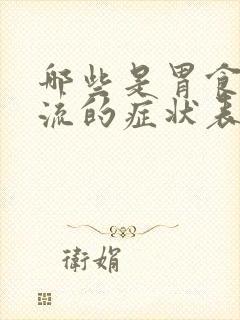 那些是胃食
流的症状表
衛娟